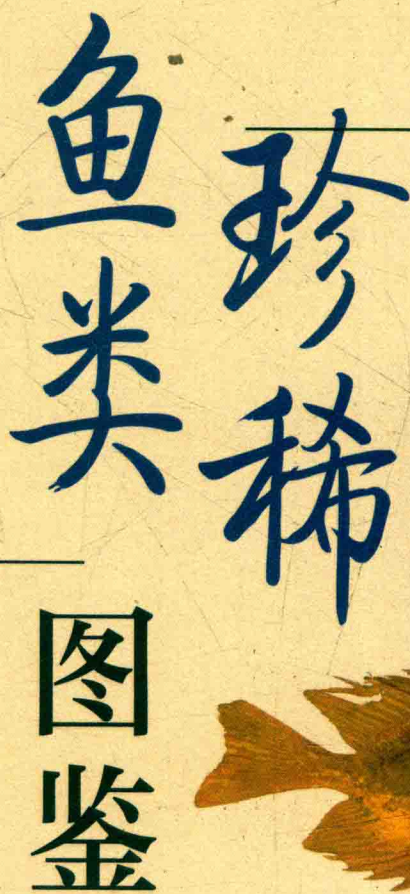 珍稀
鱼类
图鉴